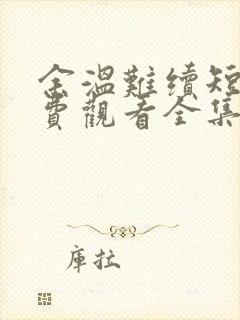 余溫難續短
費觀看全集
庫拉